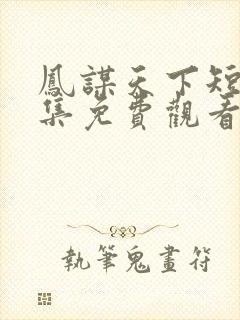 鳳謀天下短
集免費觀看
執筆鬼畫符